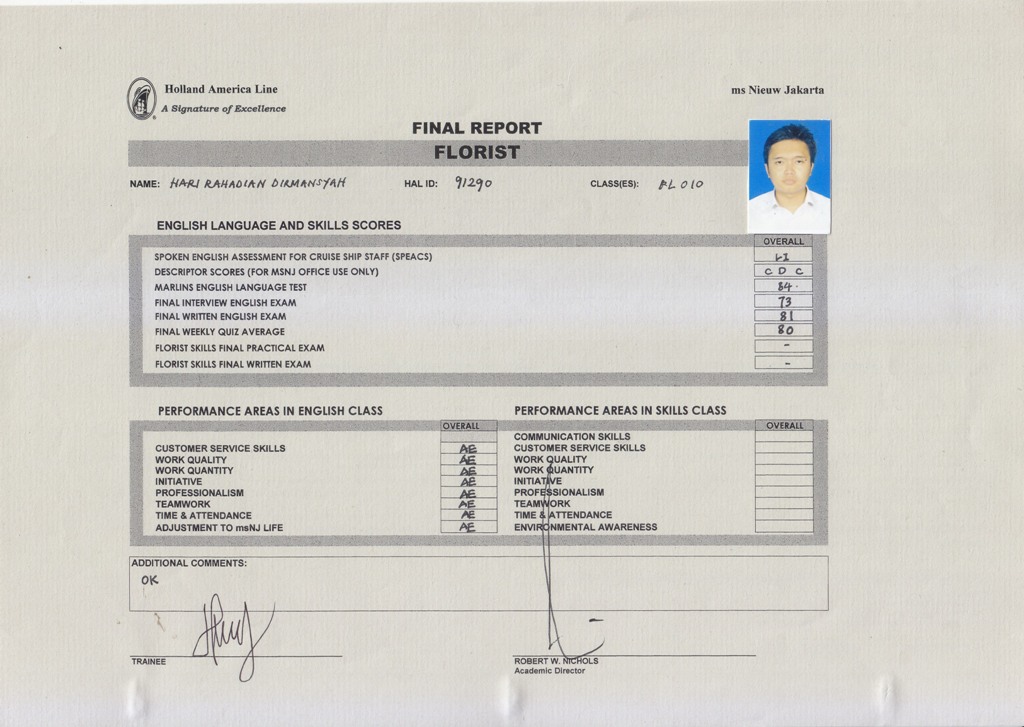 Holland America Line
A Signature of Excellence
ms Nieuw Jakarta
FINAL REPORT
FLORIST
NAME: HARI RAHADIAN DIRMANSYAH HAL ID: 91290 CLASS(ES): AL 010
ENGLISH LANGUAGE AND SKILLS SCORES
OVERALL
SPOKEN ENGLISH ASSESSMENT FOR CRUISE SHIP STAFF (SPEACS)
DESCRIPTOR SCORES (FOR MSNJ OFFICE USE ONLY) C D C
MARLINS ENGLISH LANGUAGE TEST 84.
FINAL INTERVIEW ENGLISH EXAM 73
FINAL WRITTEN ENGLISH EXAM 81
FINAL WEEKLY QUIZ AVERAGE 80
FLORIST SKILLS FINAL PRACTICAL EXAM -
FLORIST SKILLS FINAL WRITTEN EXAM -
PERFORMANCE AREAS IN ENGLISH CLASS
OVERALL
CUSTOMER SERVICE SKILLS AE
WORK QUALITY AE
WORK QUANTITY AE
INITIATIVE AE
PROFESSIONALISM AE
TEAMWORK AE
TIME & ATTENDANCE AE
ADJUSTMENT TO msNJ LIFE AE
PERFORMANCE AREAS IN SKILLS CLASS
OVERALL
COMMUNICATION SKILLS
CUSTOMER SERVICE SKILLS
WORK QUALITY
WORK QUANTITY
INITIATIVE
PROFESSIONALISM
TEAMWORK
TIME & ATTENDANCE
ENVIRONMENTAL AWARENESS
ADDITIONAL COMMENTS:
OK
TRAINEE
ROBERT W. NICHOLS
Academic Director